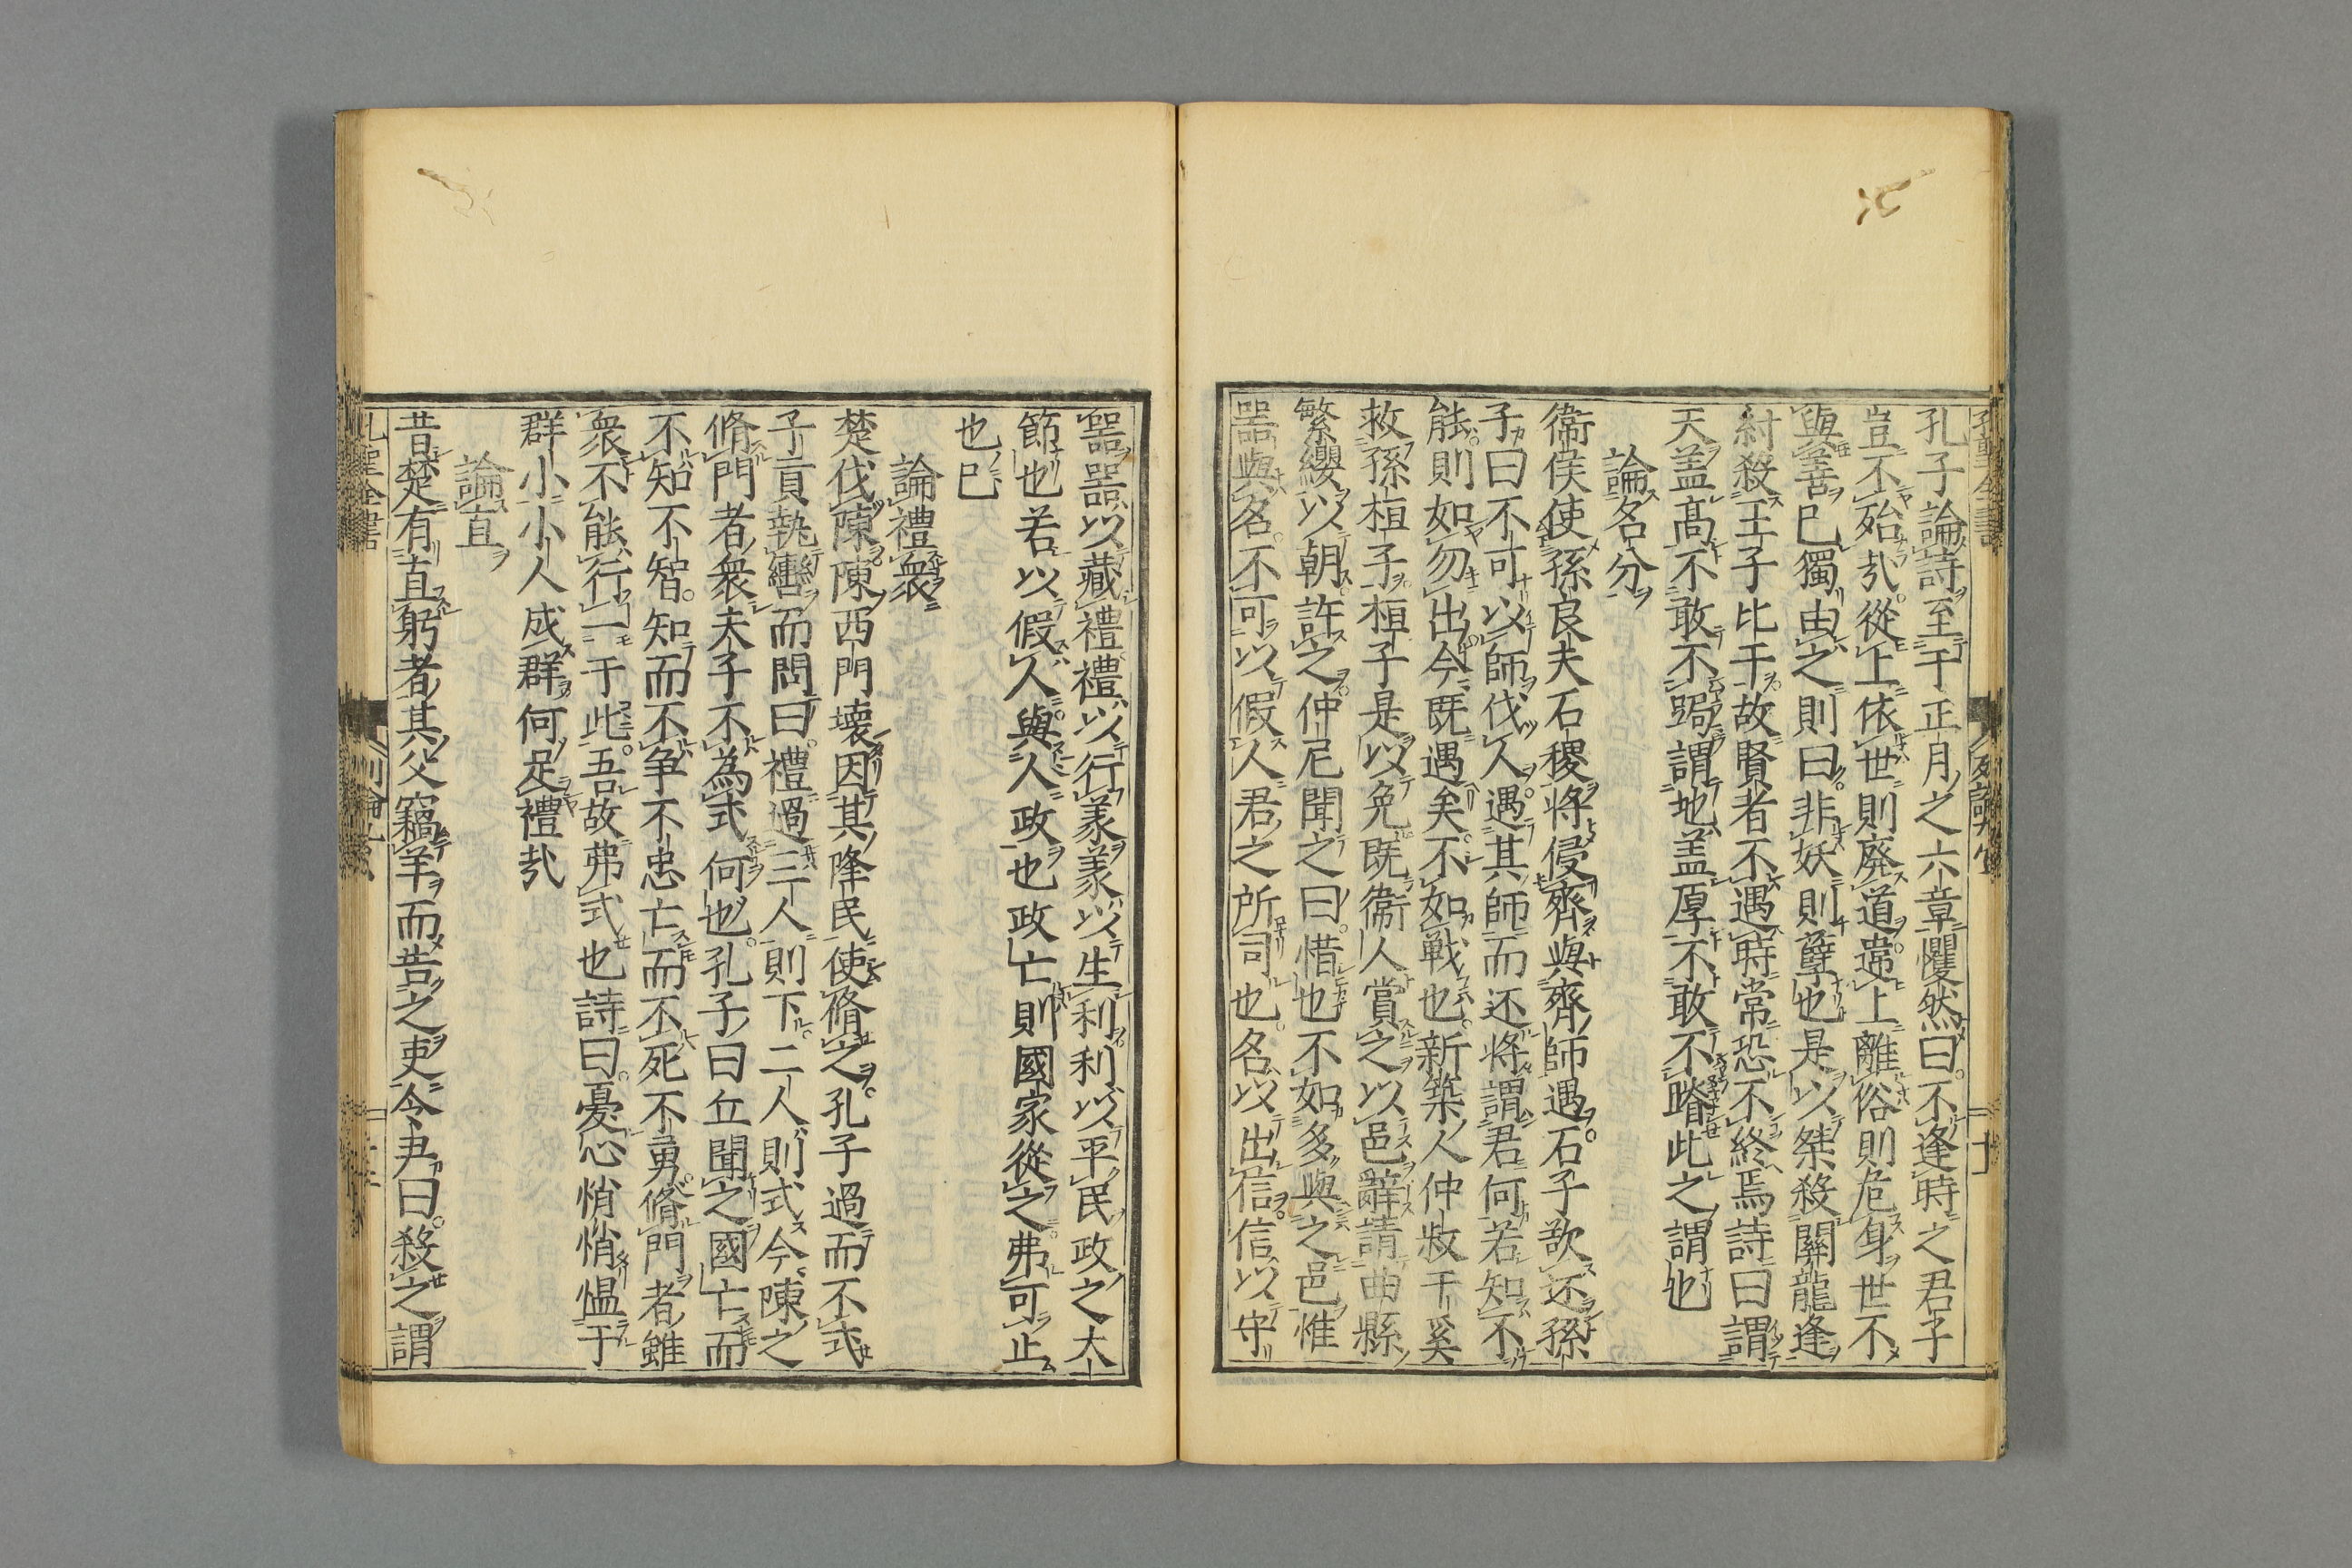 孔子論詩至于正月之六章懼然曰不逢時之君子
豈不殆哉從上依世則廃道違上離俗則危身世不
與善已獨由之則曰非妖則孽也是以桀殺關龍逢
紂殺王子比干故賢者不遇時常恐不終焉詩曰謂
天盖高不敢不跼謂地盖厚不敢不蹐此之謂也
論名分
衞侯使孫良夫石稷将侵齊與齊師遇石子欲还孫
子曰不可以師伐人遇其師而还将謂君何若知不
能則如勿出今既遇矣不如戦也新築人仲叔于奚
救孫桓子桓子是以免既衞人賞之以邑辭請曲縣
繁纓以朝許之仲尼聞之曰惜也不如多與之邑惟
器與名不可以假人君之所司也名以出信信以守
器器以藏禮禮以行義義以生利利以平民政之大
節也若以假人與人政也政亡則國家從之弗可止
也已
論禮衆
楚伐陳陳西門壊因其降民使脩之孔子過而不式
子貢執轡而問曰禮過三人則下二人則式今陳之
脩門者衆夫子不為式何也孔子曰丘聞之國亡而
不知不智知而不争不忠亡而不死不勇脩門者雖
衆不能行一于此吾故弗式也詩曰憂心悄悄愠于
群小小人成群何足禮哉
論直
昔楚有直躬者其父竊羊而告之吏令尹曰殺之謂